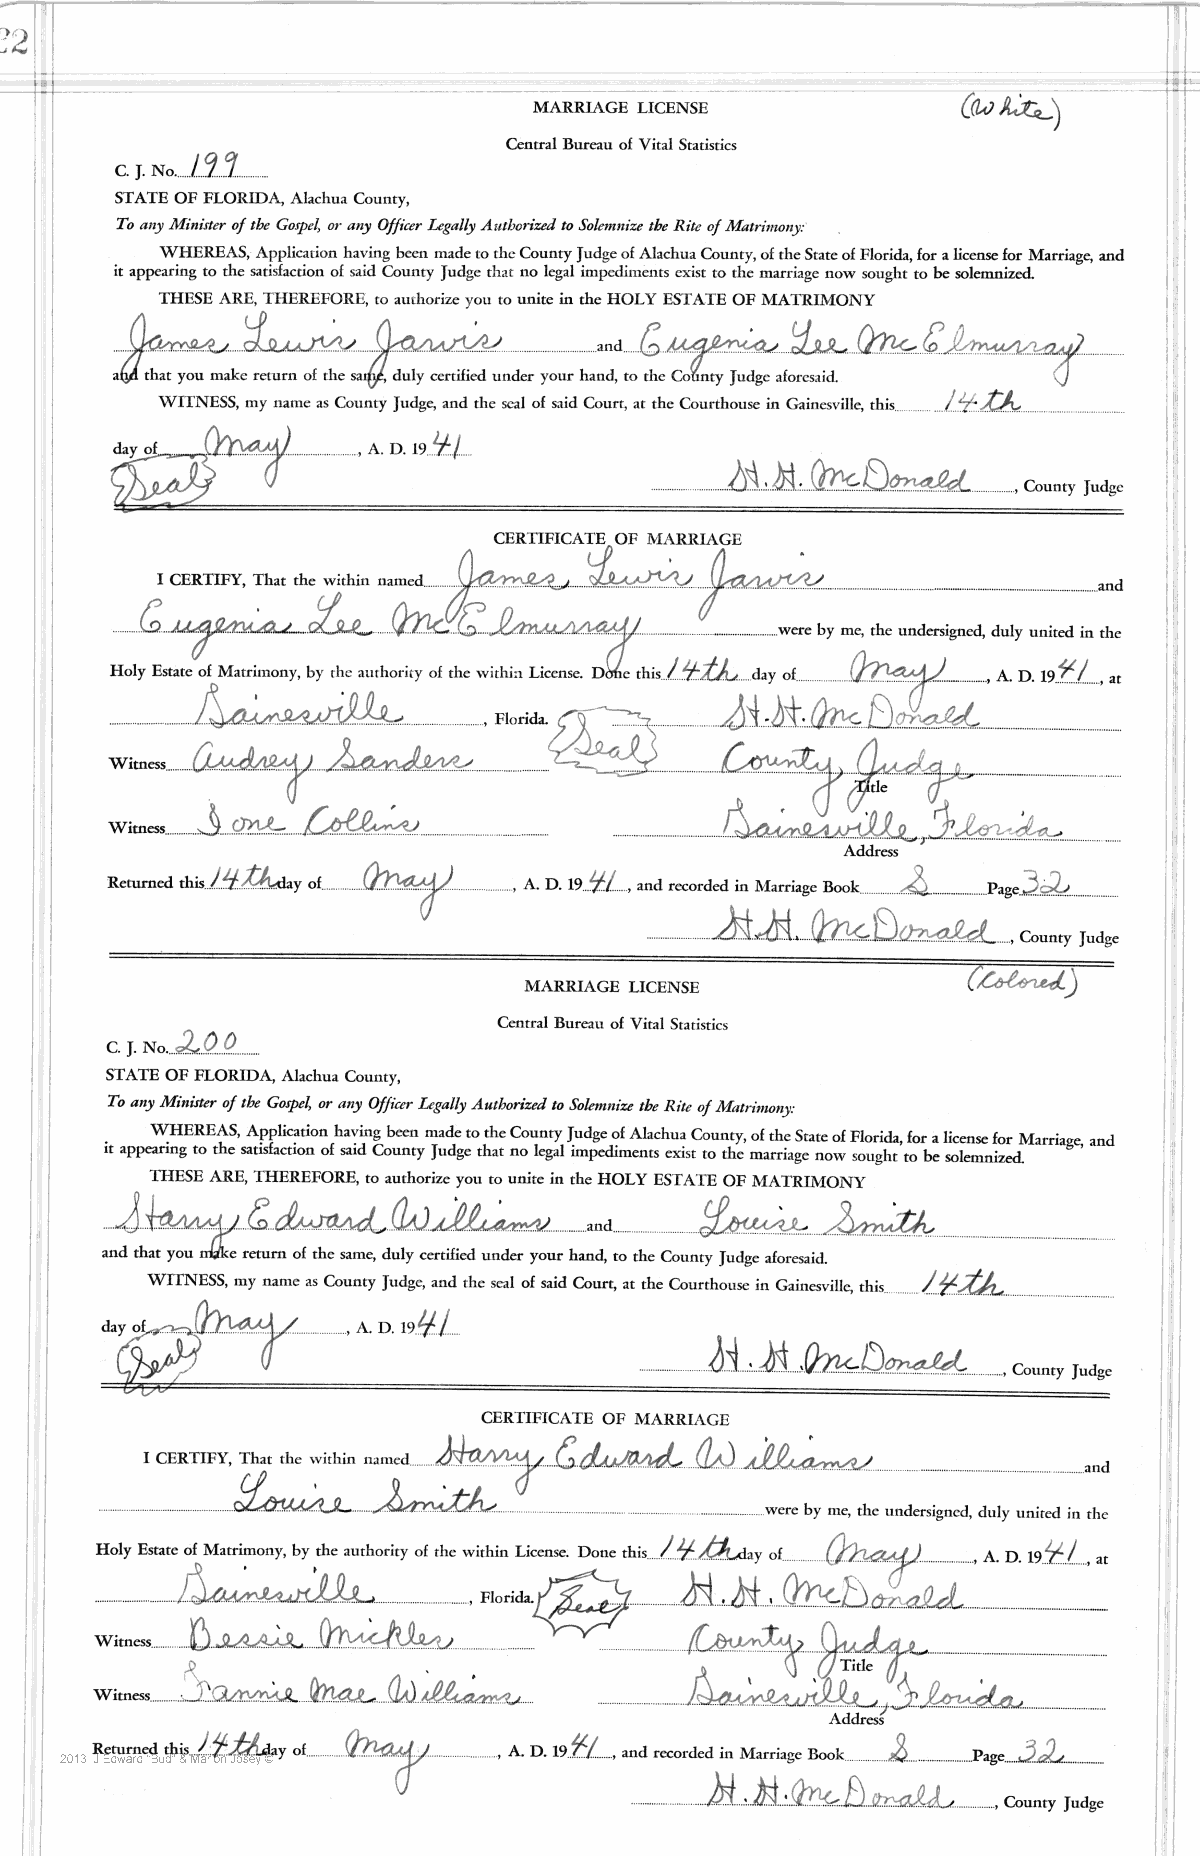 22
MARRIAGE LICENSE (White)
Central Bureau of Vital Statistics
C. J. No. 199
STATE OF FLORIDA, Alachua County,
To any Minister of the Gospel, or any Officer Legally Authorized to Solemnize the Rite of Matrimony:
WHEREAS, Application having been made to the County Judge of Alachua County, of the State of Florida, for a license for Marriage, and
it appearing to the satisfaction of said County Judge that no legal impediments exist to the marriage now sought to be solemnized.
THESE ARE, THEREFORE, to authorize you to unite in the HOLY ESTATE OF MATRIMONY
James Lewis Jarvis and Eugenia Lee McElmurray
and that you make return of the same, duly certified under your hand, to the County Judge aforesaid.
WITNESS, my name as County Judge, and the seal of said Court, at the Courthouse in Gainesville, this 14th
day of May, A. D. 1941
Seal H. H. McDonald, County Judge
CERTIFICATE OF MARRIAGE
I CERTIFY, That the within named James Lewis Jarvis and
Eugenia Lee McElmurray were by me, the undersigned, duly united in the
Holy Estate of Matrimony, by the authority of the within License. Done this 14th day of May, A. D. 1941, at
Gainesville, Florida. Seal H. H. McDonald
Witness Audrey Sanders County Judge
Title
Witness Ione Collins Gainesville, Florida
Address
Returned this 14th day of May, A. D. 1941, and recorded in Marriage Book S Page 32
H. H. McDonald, County Judge
MARRIAGE LICENSE (Colored)
Central Bureau of Vital Statistics
C. J. No. 200
STATE OF FLORIDA, Alachua County,
To any Minister of the Gospel, or any Officer Legally Authorized to Solemnize the Rite of Matrimony:
WHEREAS, Application having been made to the County Judge of Alachua County, of the State of Florida, for a license for Marriage, and
it appearing to the satisfaction of said County Judge that no legal impediments exist to the marriage now sought to be solemnized.
THESE ARE, THEREFORE, to authorize you to unite in the HOLY ESTATE OF MATRIMONY
Harry Edward Williams and Louise Smith
and that you make return of the same, duly certified under your hand, to the County Judge aforesaid.
WITNESS, my name as County Judge, and the seal of said Court, at the Courthouse in Gainesville, this 14th
day of May, A. D. 1941
Seal H. H. McDonald, County Judge
CERTIFICATE OF MARRIAGE
I CERTIFY, That the within named Harry Edward Williams and
Louise Smith were by me, the undersigned, duly united in the
Holy Estate of Matrimony, by the authority of the within License. Done this 14th day of May, A. D. 1941, at
Gainesville, Florida. Seal H. H. McDonald
Witness Bessie Mickler County Judge
Title
Witness Fannie Mae Williams Gainesville, Florida
Address
Returned this 14th day of May, A. D. 1941, and recorded in Marriage Book S Page 32
2013 J Edward "Bud" & Marion Josey ©
H. H. McDonald, County Judge